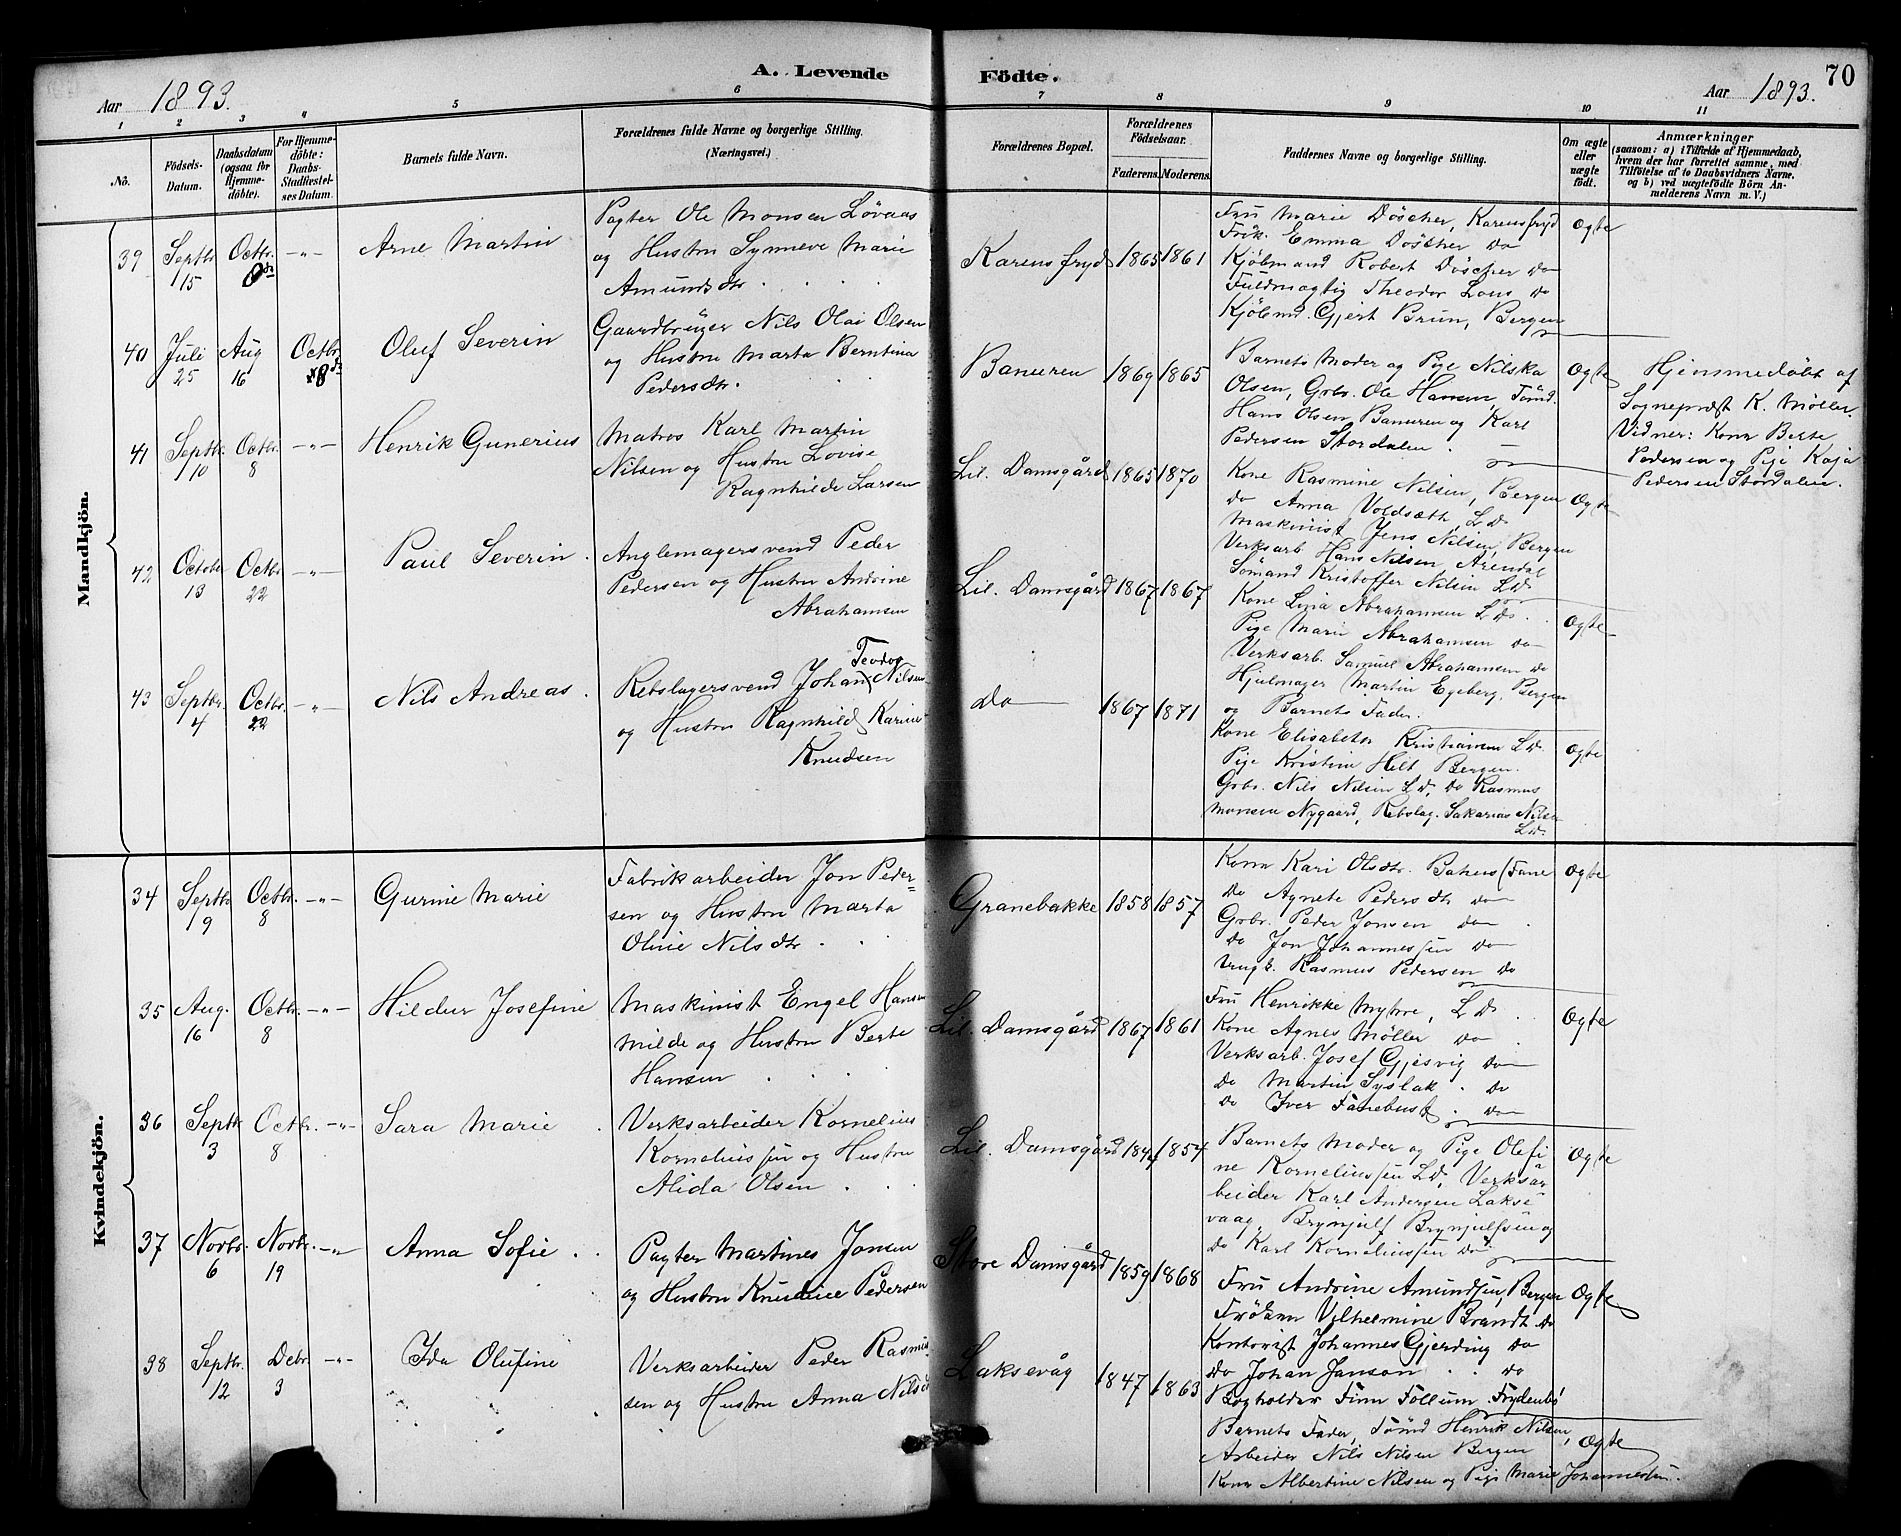 A. Levende Födte.
70
Aar 1893.
Aar 1893.
1 2 3 4 5 6 7 8 9 10 11
No.
Födsels-Datum.
Daabsdatum (ogsaa for Hjemmedöbte).
For Hjemmedöbte: Daabs-Stadfæstelses Datum.
Barnets fulde Navn.
Forældrenes fulde Navne og borgerlige Stilling.
(Næringsvei.)
Forældrenes Bopæl.
Forældrenes Födselsaar.
Faderens. Moderens.
Faddernes Navne og borgerlige Stilling.
Om ægte eller uægte födt.
Anmærkninger
(saasom: a) i Tilfælde af Hjemmedaab, hvem der har forrettet samme, med Tilföielse af to Daabsvidners Navne, og b) ved uægtefödte Börn Anmelderens Navn m. V.)
Mandkjön.
39 Septbr. 15 Octbr. 8de -"- Arne Martin
Pagter Ole Monsen Lövaas
og Hustru Synneve Marie
Amundsdtr.
Karensfryd 1865 1861
Fru Marie Döscher, Karensfryd
Frök. Emma Döscher do
Kjöbmand Robert Döscher do
Fuldmægtig Theodor Lous do
Kjöbmd. Gjert Brun, Bergen
Ogte
40 Juli 25 Aug 16 Octbr. 8de Oluf Severin
Gaardbruger Nils Olai Olsen
og Hustru Marta Berntina
Pedersdtr.
Banuren 1869 1865
Barnets Moder og Pige Nilska
Olsen, Grbr. Ole Hansen, Tömd.
Hans Olsen Banuren og Karl
Pedersen Stordalen.
Ogte
Hjemmedöbt af
Sognepræst K. Möller.
Vidner: Kone Berte
Pedersen og Pige Kaja
Pedersen Stordalen.
41 Septbr. 10 Octbr. 8 -"- Henrik Gunerius
Matros Karl Martin
Nilsen og Hustru Lovise
Ragnhilde Larsen
Lil. Damsgård 1865 1870
Kone Rasmine Nilsen, Bergen
do Anna Voldsæth, Ld.
Maskinist Jens Nilsen, Bergen
Verksarb. Hans Nilsen, Arendal
Sömand Kristoffer Nilsen Ld.
Ogte
42 October 13 Octbr. 22 -"- Paul Severin.
Anglemagersvend Peder
Pedersen og Hustru Andrine
Abrahamsen
Lil. Damsgård 1867 1867
Kone Lina Abrahamsen Ld.
Pige Marie Abrahamsen do
Verksarb. Samuel Abrahamsen do
Hjulmager Martin Egeberg, Bergen
og Barnets Fader.
Ogte
43 Septbr. 4 Octbr. 22 -"- Nils Andreas.
Rebslagersvend Johan Teodor Nilsen
og Hustru Ragnhild Karine
Knudsen
do 1867 1871
Kone Elisabeth Kristiansen Ld.
Pige Kristine Hilt Bergen.
Grbr. Nils Nilsen Ld. do Rasmus
Monsen Nygaard, Rebslag. Sakarias Nilsen
Ld.
Ogte
Kvindekjön.
34 Septbr. 9 Octbr. 8 -"- Gurine Marie
Fabrikarbeider Jon Peder-
sen og Hustru Marta
Oline Nilsdtr.
Granebakke 1858 1857
Kone Kari Olsdtr. (Fane
do Agnete Pedersdtr do
Grbr. Peder Jonsen do
do Jon Johannessen do
Ungk. Rasmus Pedersen do
Ogte
35 Aug. 16 Octbr. 8 -"- Hildur Josefine
Maskinist Engel Hansen
Milde og Hustru Berte
Hansen
Lil. Damsgård 1867 1861
Fru Henrikke Myhre, Ld.
Kone Agnes Möller do
Verksarb. Josef Gjesvig do
do Martin Syslak do
do Iver Fanebust do
Ogte
36 Septbr. 3 Octbr. 8 -"- Sara Marie
Verksarbeider Kornelius
Korneliussen og Hustru
Alida Olsen
Lil. Damsgård 1844 1854
Barnets Moder og Pige Olefi
ne Korneliussen Ld, Verksar
beider Karl Andersen Lakse
vaag, Brynjulf Brynjulfsen og
do Karl Korneliussen do
Ogte
37 Novbr. 6 Novbr. 19 -"- Anna Sofie.
Pagter Martines Jonsen
og Hustru Pedersen
Store Damsgård 1859 1868
Fru Andrine Amundsen, Bergen
Fröken Vilhelmine Brandt do
Kontorist Johannes Gjerding do
do Johan Janson do
Bogholder Finn Follum Frydenbö
Ogte
38 Septbr. 12 Debr. 3 -"- Ida Olufine
Verksarbeider Peder Rasmus-
sen og Hustru Anna Nilsen
Laksevåg 1847 1863
Barnets Fader, Tömd Henrik Nilsen,
Arbeider Nils Nilsen Bergen
Kone Albertine Nilsen og Pige Marie Johannessen.
Ogte